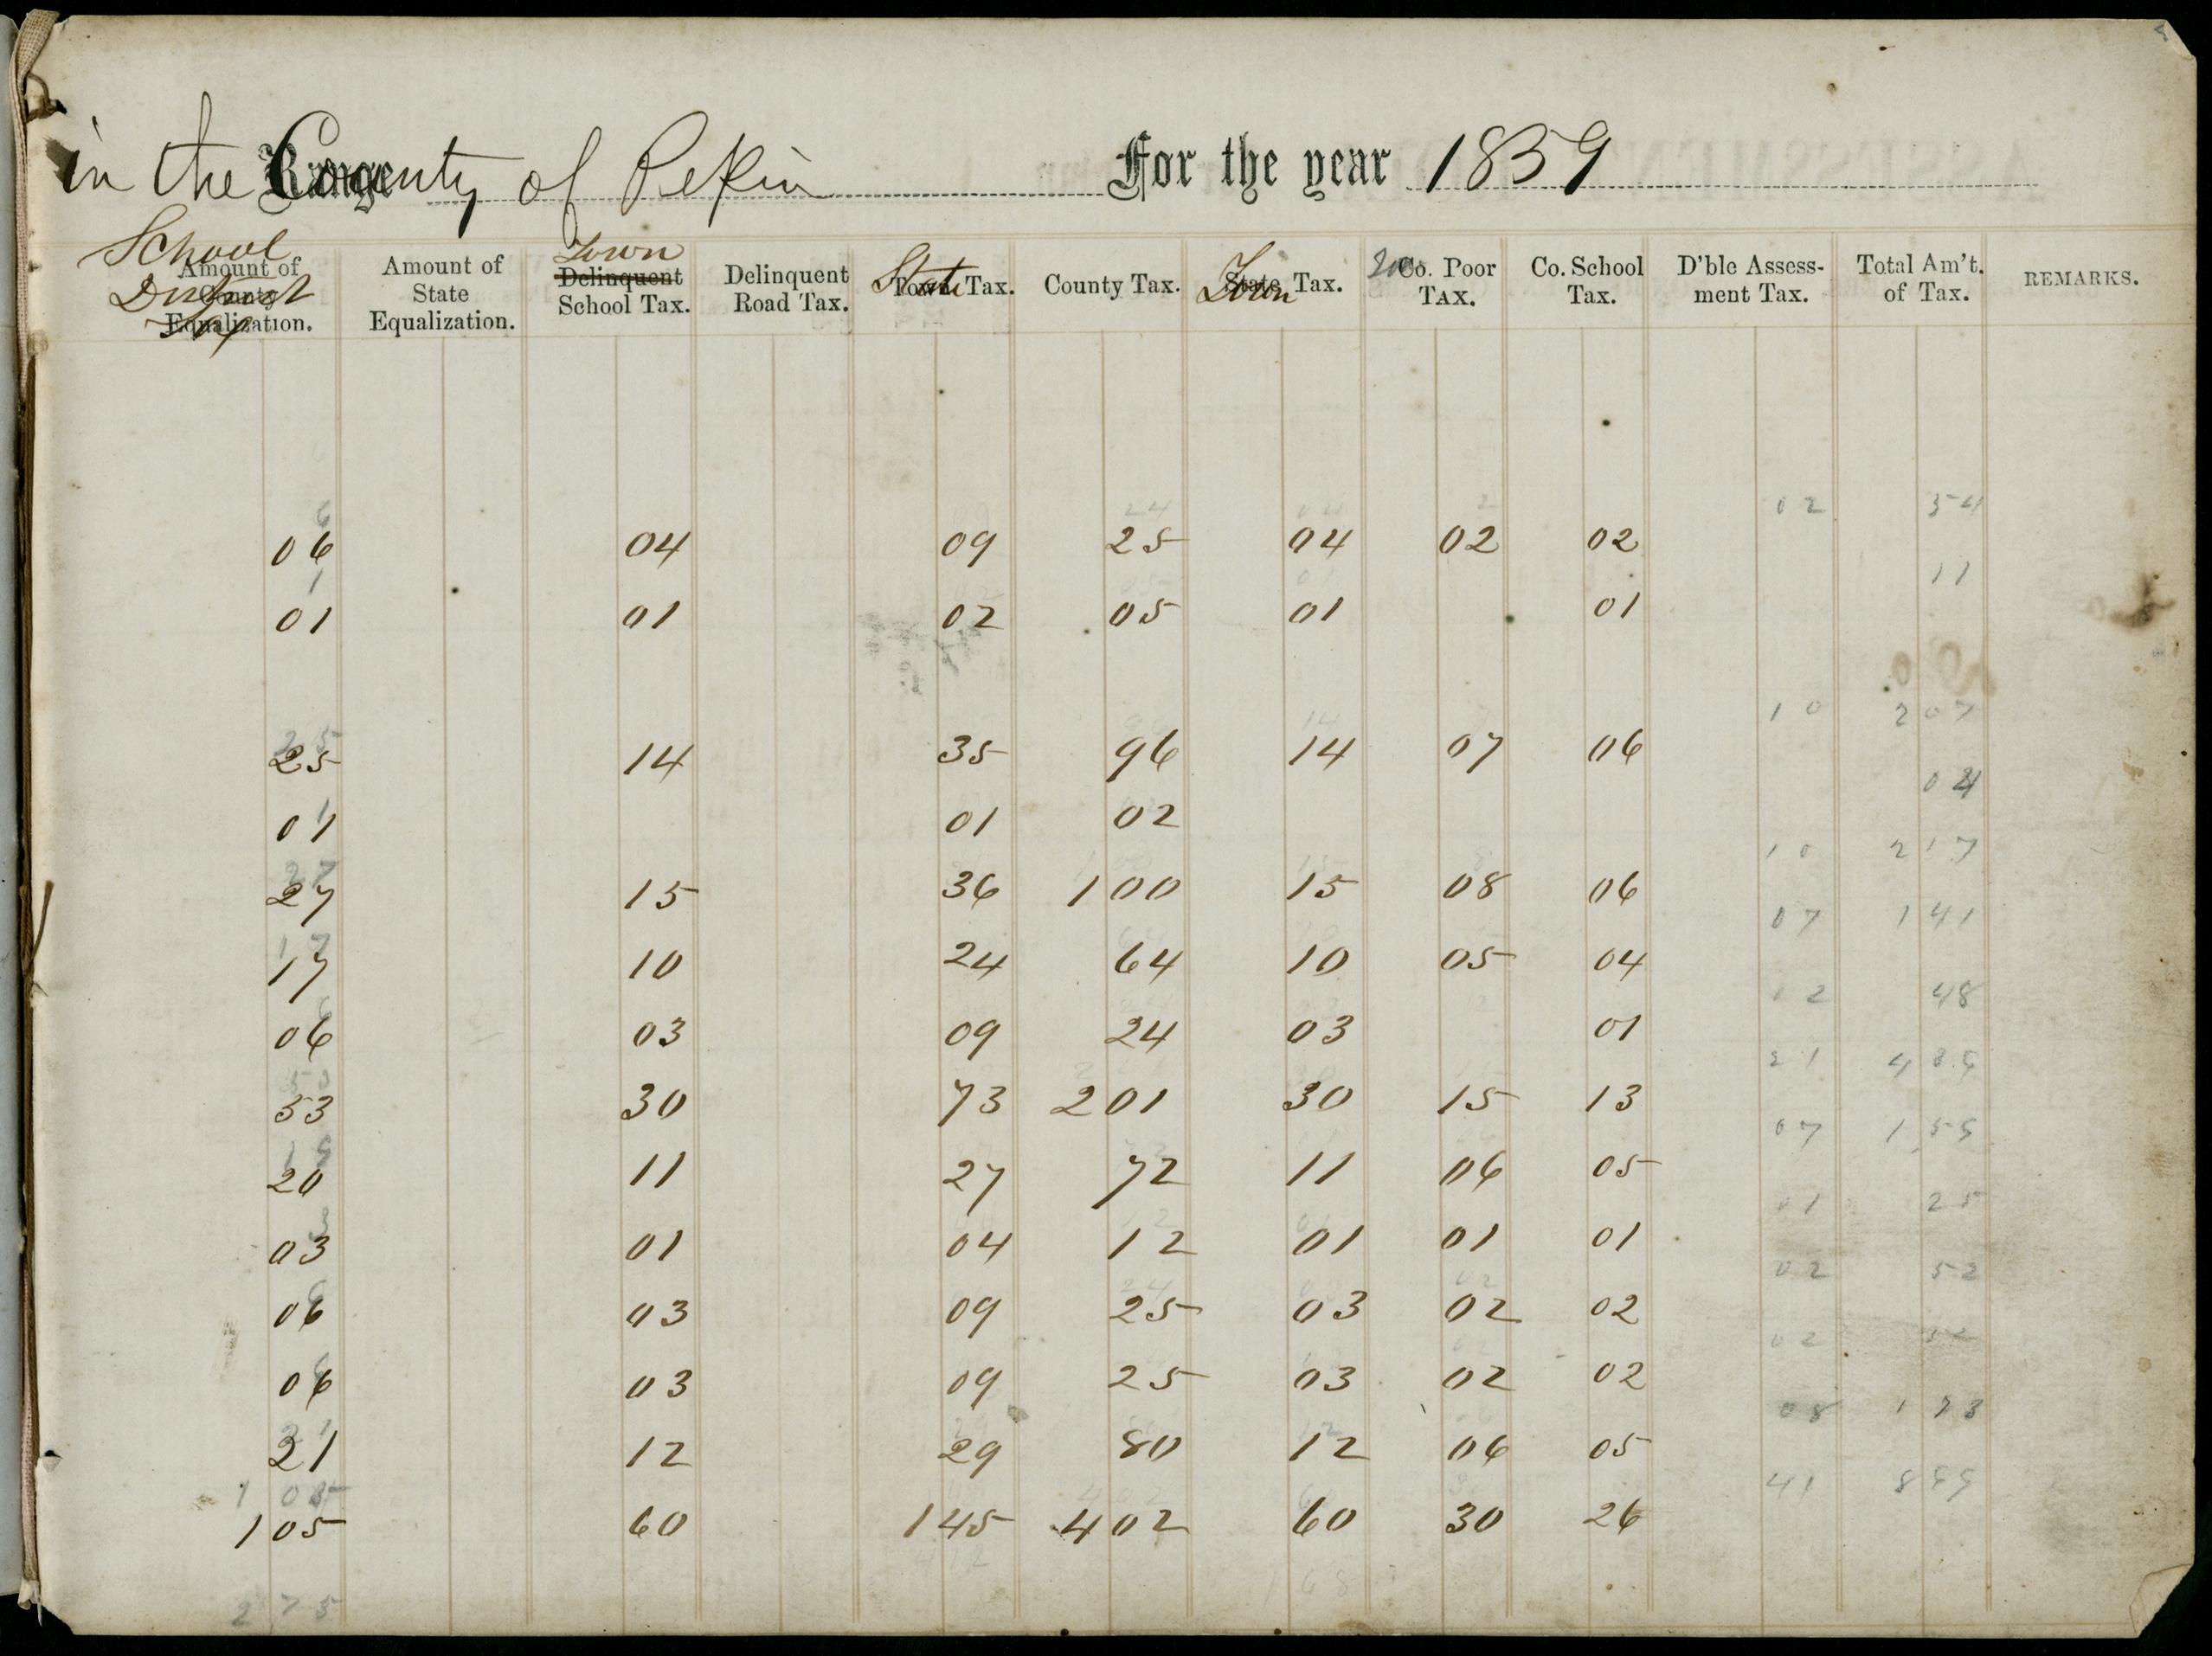 in the County of Pekin For the year 1859
School District Tax
Amount of County Equalization. Amount of State Equalization. Town Delinquent School Tax. Delinquent Road Tax. State Town Tax. County Tax. Town State Tax. Co. Poor Tax. Co. School Tax. D'ble Assessment Tax. Total Am't. of Tax. REMARKS.
02 54
06 04 09 25 04 02 02
11
01 01 02 05 01 01
10 2 07
25 14 35 96 14 07 06
04
01 01 02
10 2 17
27 15 36 1 00 15 08 06
07 1 41
17 10 24 64 10 05 04
02 48
06 03 09 24 03 01
21 4
53 30 73 2 01 30 15 13
07 1
20 11 27 72 11 06 05
01 25
03 01 04 12 01 01 01
02 52
06 03 09 25 03 02 02
02
06 03 09 25 03 02 02
08 1 73
21 12 29 80 12 06 05
41
1 05 60 1 45 4 02 60 30 26
2 75